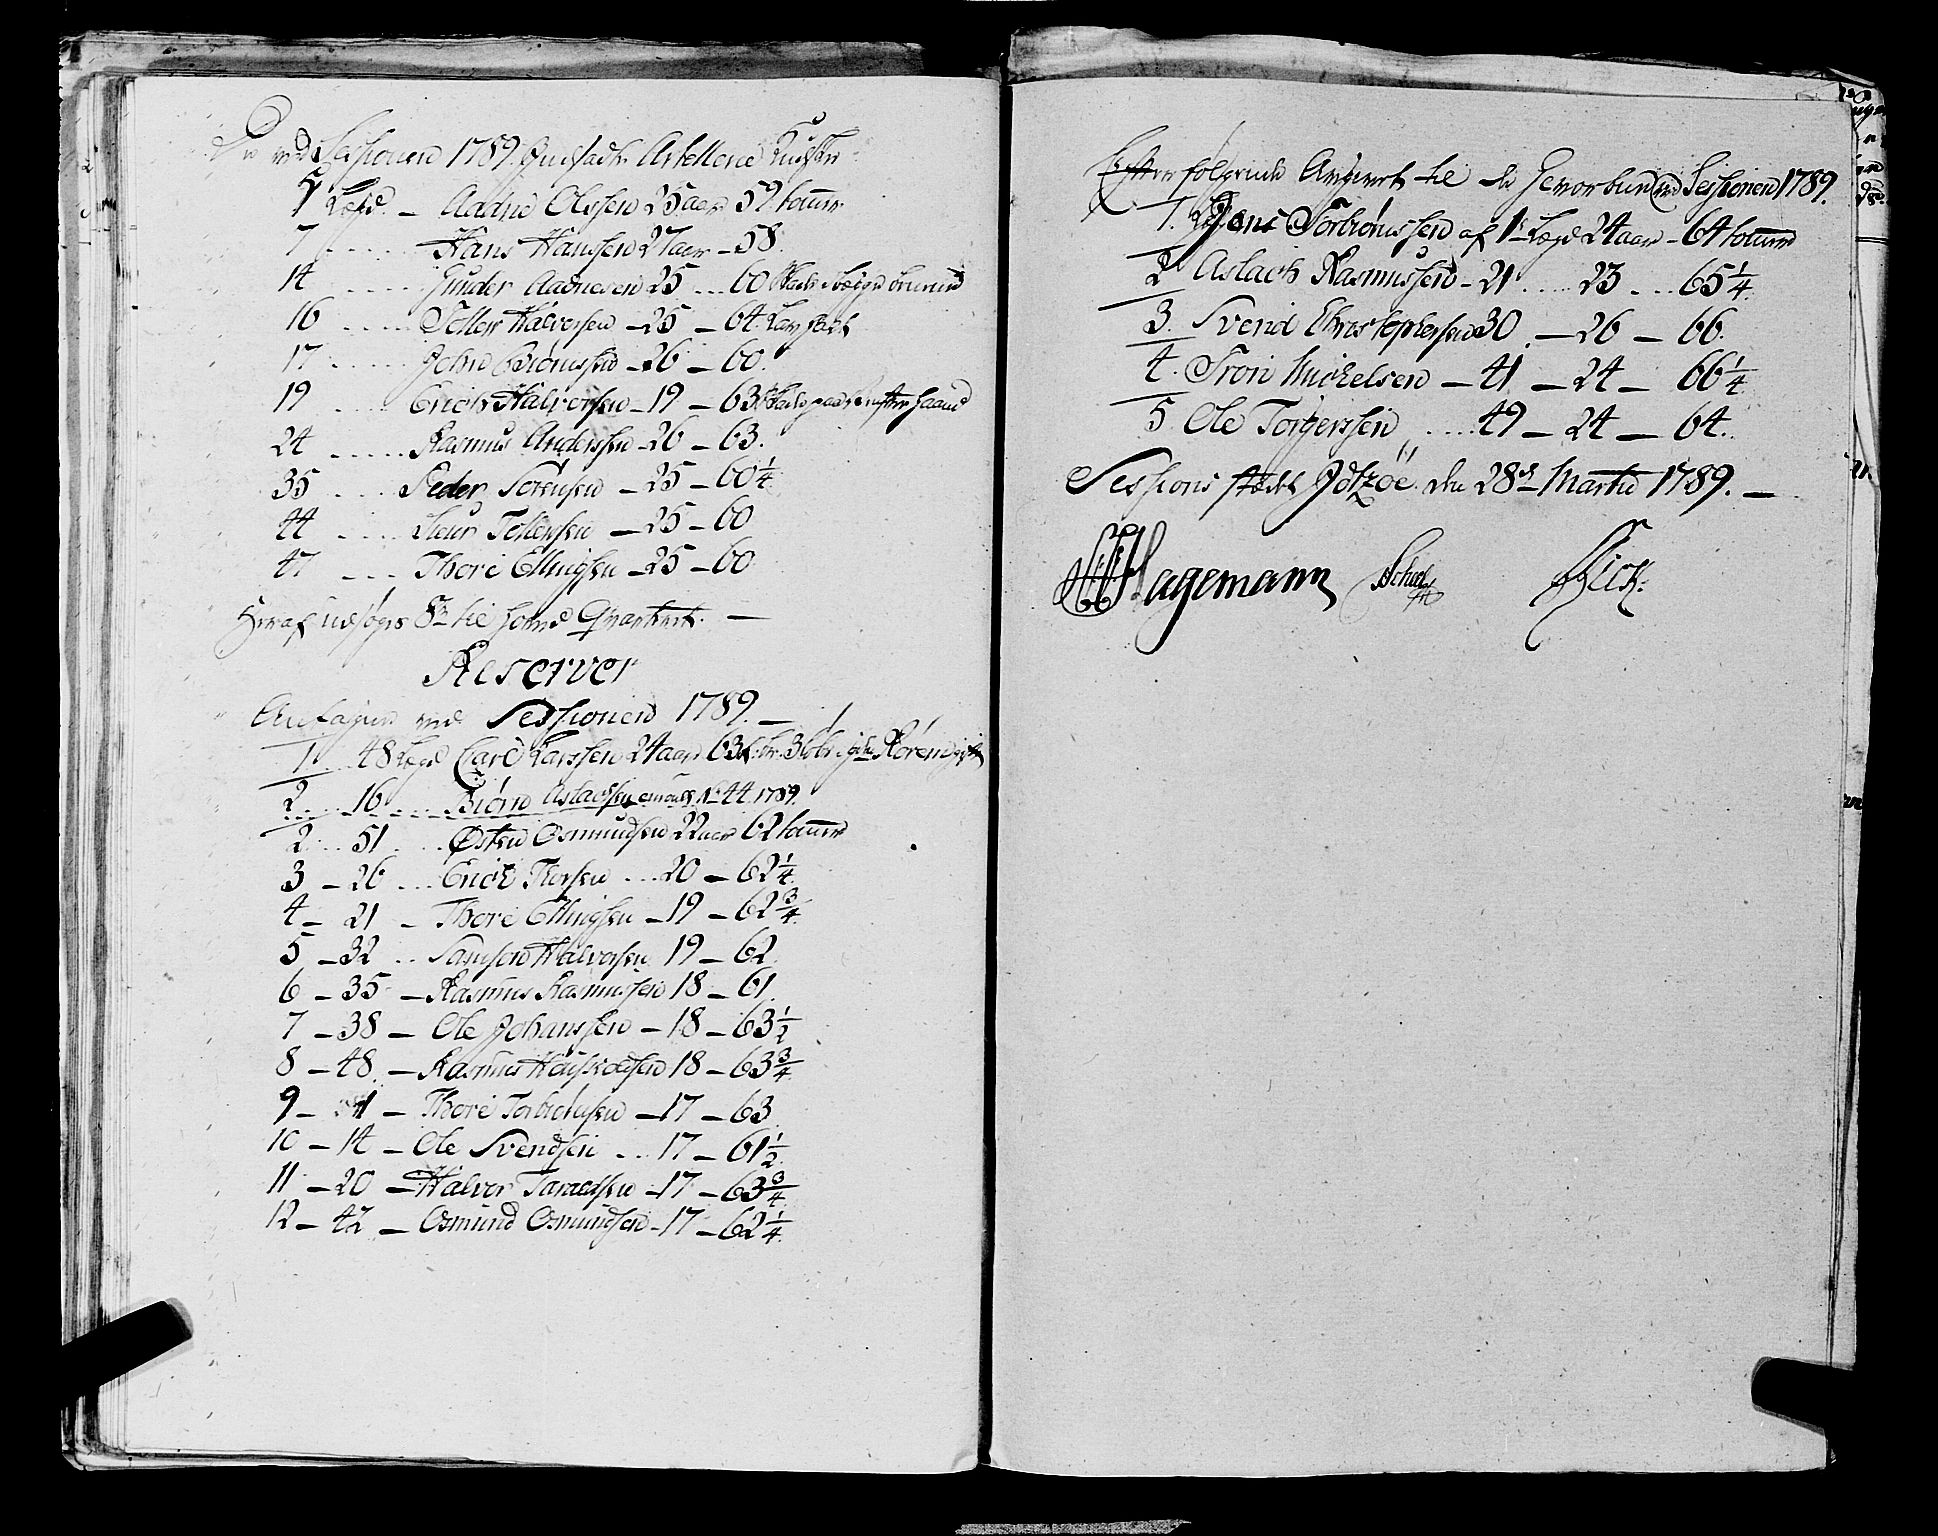 De ved Sessionen 1789. Indsadte Artellerie Kudske
5 Lægd. - Aadne Olssen 25 aar 59 tomer
7 ..... Hans Hanssen 27 aar - 58.
14 ..... Gunder Aadnesen 25 ... 60
16 ..... Toller Halvorsen - 25 - 64.
17 ..... John Biørnssen - 26 - 60.
19 .... Erich Halvorssen - 19 - 63
24 ..... Rasmus Anderssen - 26 - 63.
35 .... Peder Sørensen - 25 - 60 1/4
44 .... Siur Tollefsen - 25 - 60
47 ... Thore Ellingsen - 25 - 60
Heraf udsøges 8 til Quarteret. -
Reserver
Antagne ved Sessionen 1789. -
1. 48 Lægd Carl Larssen 24 aar 63
2. ... 16 .... Biørn Aslachsen No 44. 1789.
2 ... 51 .... Østen Osmundsen 22 aar 62 tomer
3 - 26 ... Erich Thorsen ... 20 - 62 1/4
4 - 21 - Thore Ellingsen - 19 - 62 3/4.
5 - 32 .. Samson Halvorsen 19 - 62.
6 - 35 - Rasmus Rasmussen 18 - 61.
7 - 38 - Ole Johanssen - 18 - 63 1/2
8 - 48. - Rasmus 18 - 63 3/4.
9 - 1 - Thore Torbiønsen - 17 - 63
10 - 14 - Ole Svendsen ... 17 - 61 1/2.
11 - 20 - Halvor Taraldsen - 17 - 63 3/4
12 - 42 - Osmund Osmundsen - 17 - 62 1/4.
Efterfølgende til de ved Sessionen 1789.
1. Jens Torbiønssen af 1te Lægd 24 aar - 64 tomer
2 Aslach Rasmussen - 21 ..... 23 ... 65 1/4.
3. Svend Christophersen 30. - 26 - 66.
4. Tron Mickelsen - 41 - 24 - 66 1/4
5 Ole Torgerssen ..... 49 - 24 - 64.
Sessions stædet den 28de Martii 1789. -
Hagemann